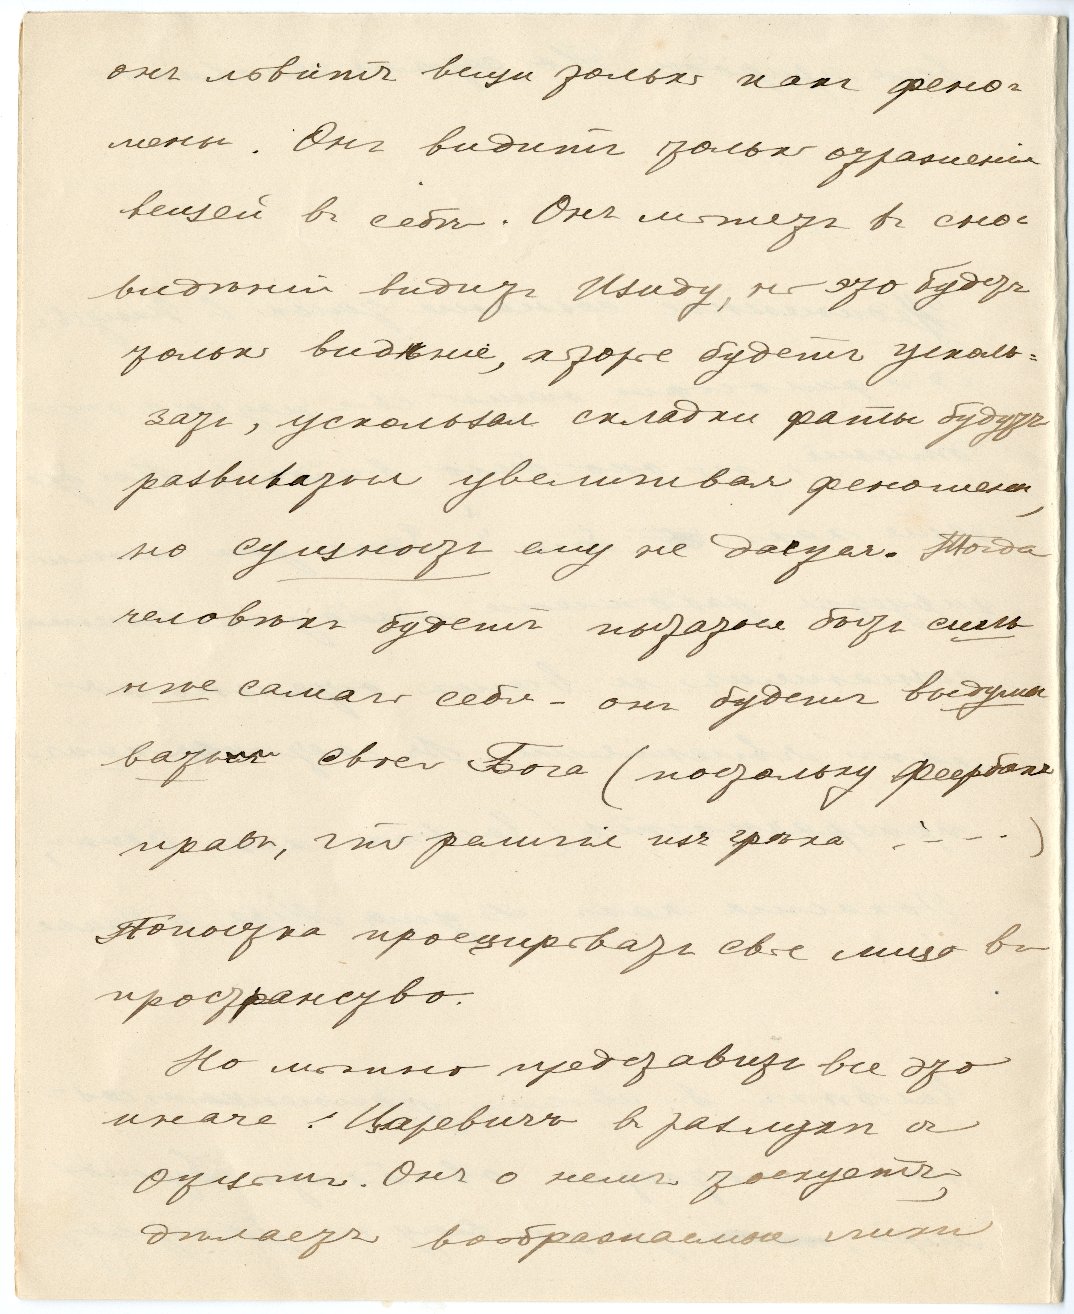 онъ ловитъ вещи только какъ фено-
мены. Онъ видитъ только отраженiя
вещей въ себѣ. Онъ можетъ въ сно-
видѣнiи видить Изиду, но это будетъ
только видѣнiе, которое будетъ усколь-
зать, ускользая складки фаты будутъ
развиваться увеличивая феномены,
но сущность ему не дастся. Тогда
человѣкъ будетъ пытаться быть силь
нѣе самаго себя – онъ будетъ выдумы
вать своего Бога (постольку Феербахъ
правъ, что религiя изъ грѣха . – – . )
Попытка проецировать свое лицо въ
пространство.
Но можно представить все это
иначе: Царевичъ въ разлукѣ съ
отцомъ. Онъ о немъ тоскуетъ,
дѣлаетъ воображаемые лики